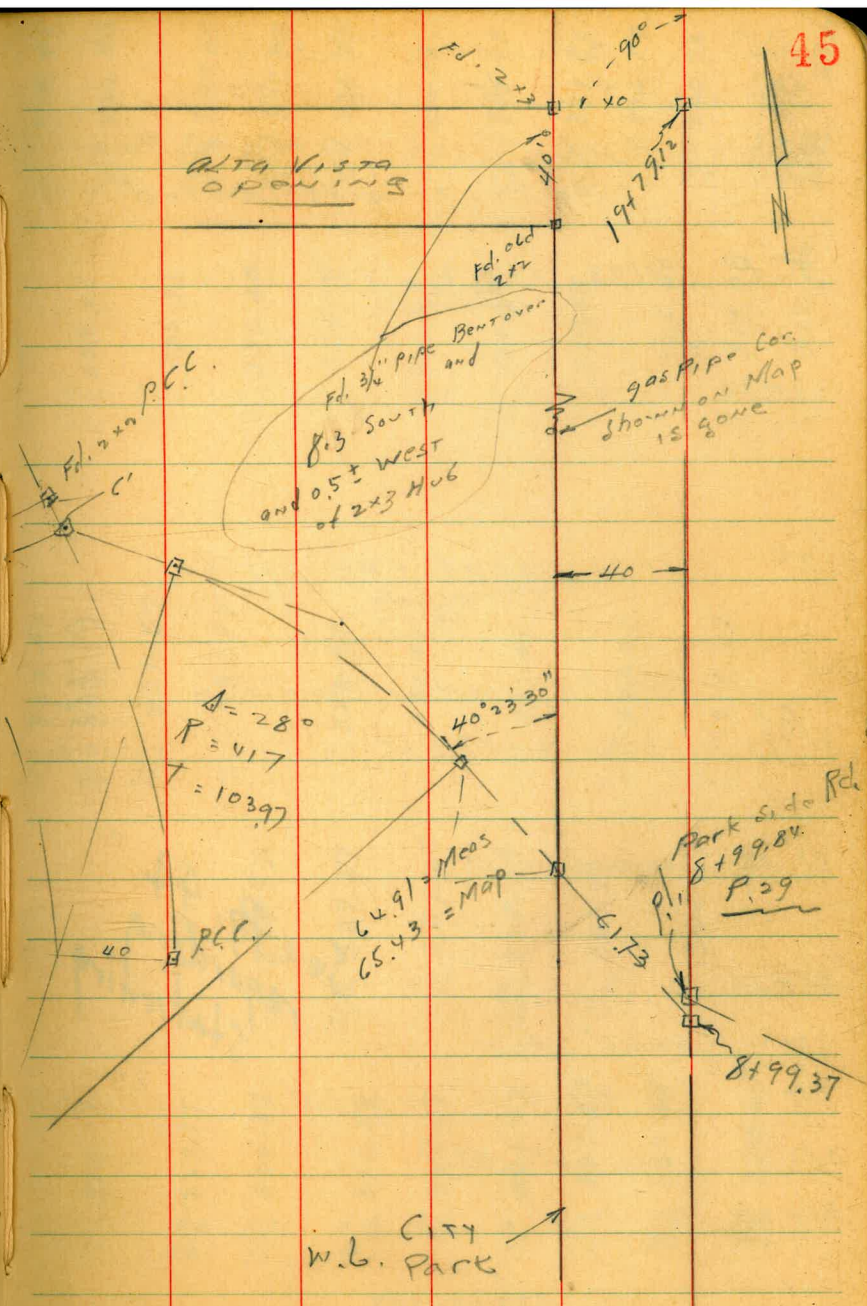 45
Fd. 2x3
90°
40
ALTA VISTA
OPENING
40.0
19+79.12
Fd. old
2x2
Fd. 3/4" pipe Bent over
and
8.3 South
and 0.5± West
of 2x3 Hub
gas Pipe Cor.
Shown on Map
is gone
Fd. 2x2 P.C.C.
C'
40
Δ = 28°
R = 417
T = 103.97
40°23'30"
64.91 = Meas
65.43 = Map
Park side Rd.
8+99.84
P.29
61.73
40
P.C.C.
8+99.37
W.L. City
Park